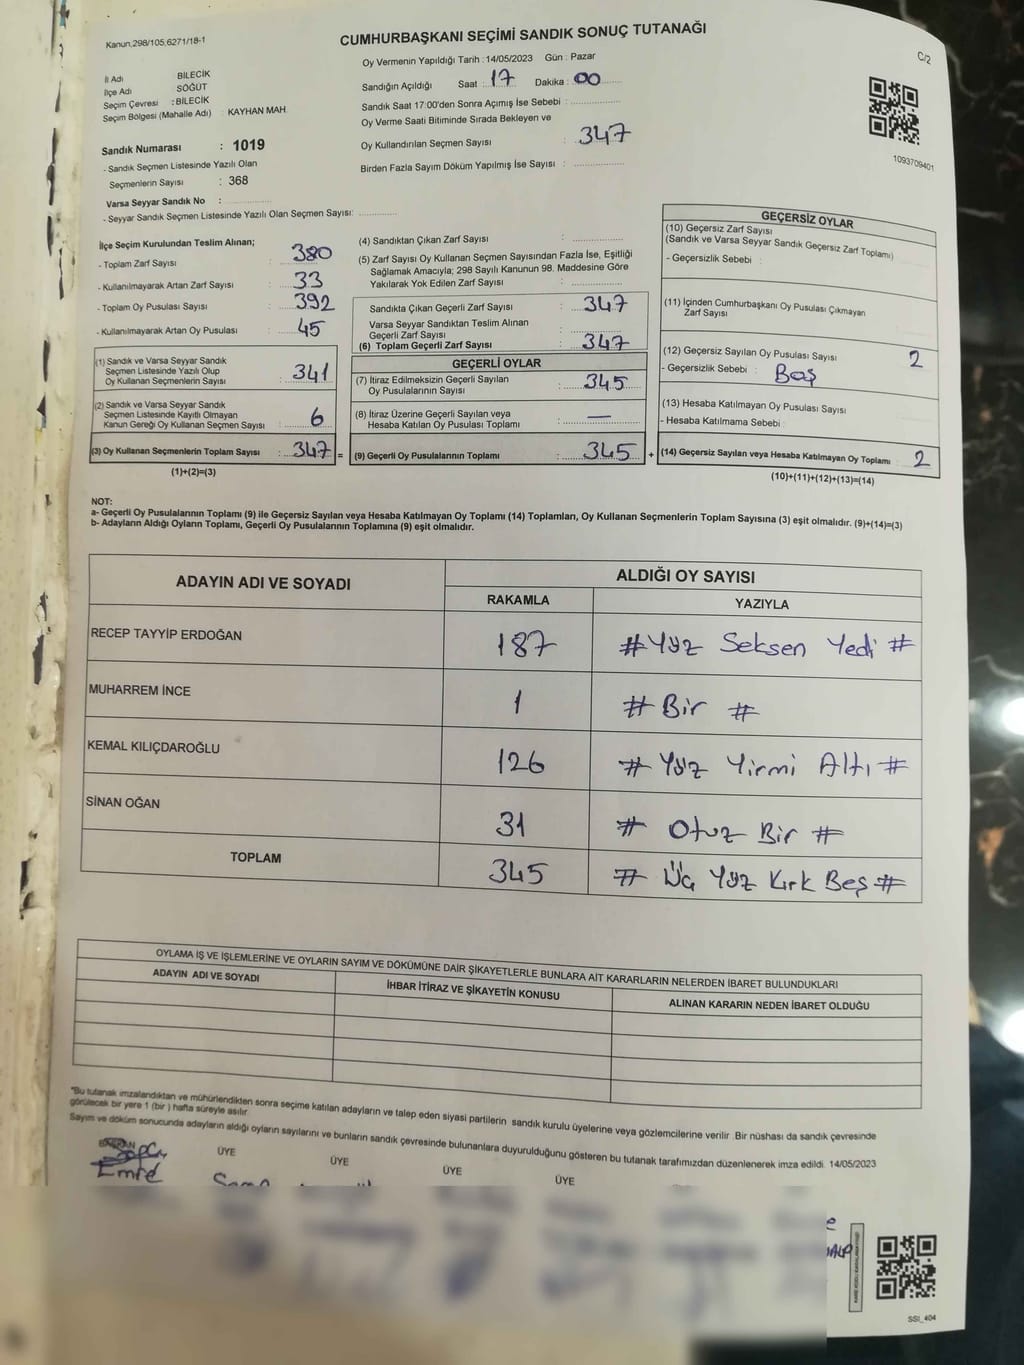 Kanun,298/105;6271/18-1
CUMHURBAŞKANI SEÇİMİ SANDIK SONUÇ TUTANAĞI
C/2
İl Adı BİLECİK
İlçe Adı SÖĞÜT
Seçim Çevresi : BİLECİK
Seçim Bölgesi (Mahalle Adı) : KAYHAN MAH.
Sandık Numarası : 1019
- Sandık Seçmen Listesinde Yazılı Olan
Seçmenlerin Sayısı : 368
Varsa Seyyar Sandık No :
- Seyyar Sandık Seçmen Listesinde Yazılı Olan Seçmen Sayısı:
Oy Vermenin Yapıldığı Tarih : 14/05/2023 Gün : Pazar
Sandığın Açıldığı Saat : 17 Dakika : 00
Sandık Saat 17:00'den Sonra Açımış İse Sebebi :
Oy Verme Saati Bitiminde Sırada Bekleyen ve
Oy Kullandırılan Seçmen Sayısı : 347
Birden Fazla Sayım Döküm Yapılmış İse Sayısı :
1093709401
İlçe Seçim Kurulundan Teslim Alınan;
- Toplam Zarf Sayısı : 380
- Kullanılmayarak Artan Zarf Sayısı : 33
- Toplam Oy Pusulası Sayısı : 392
- Kullanılmayarak Artan Oy Pusulası : 45
(1) Sandık ve Varsa Seyyar Sandık
Seçmen Listesinde Yazılı Olup
Oy Kullanan Seçmenlerin Sayısı : 341
(2) Sandık ve Varsa Seyyar Sandık
Seçmen Listesinde Kayıtlı Olmayan
Kanun Gereği Oy Kullanan Seçmen Sayısı : 6
(3) Oy Kullanan Seçmenlerin Toplam Sayısı : 347 =
(1)+(2)=(3)
(4) Sandıktan Çıkan Zarf Sayısı :
(5) Zarf Sayısı Oy Kullanan Seçmen Sayısından Fazla İse, Eşitliği
Sağlamak Amacıyla; 298 Sayılı Kanunun 98. Maddesine Göre
Yakılarak Yok Edilen Zarf Sayısı :
Sandıkta Çıkan Geçerli Zarf Sayısı : 347
Varsa Seyyar Sandıktan Teslim Alınan
Geçerli Zarf Sayısı :
(6) Toplam Geçerli Zarf Sayısı : 347
GEÇERLİ OYLAR
(7) İtiraz Edilmeksizin Geçerli Sayılan
Oy Pusulalarının Sayısı : 345
(8) İtiraz Üzerine Geçerli Sayılan veya
Hesaba Katılan Oy Pusulası Toplamı : —
(9) Geçerli Oy Pusulalarının Toplamı : 345 +
GEÇERSİZ OYLAR
(10) Geçersiz Zarf Sayısı
(Sandık ve Varsa Seyyar Sandık Geçersiz Zarf Toplamı)
- Geçersizlik Sebebi :
(11) İçinden Cumhurbaşkanı Oy Pusulası Çıkmayan
Zarf Sayısı
(12) Geçersiz Sayılan Oy Pusulası Sayısı 2
- Geçersizlik Sebebi : Boş
(13) Hesaba Katılmayan Oy Pusulası Sayısı
- Hesaba Katılmama Sebebi :
(14) Geçersiz Sayılan veya Hesaba Katılmayan Oy Toplamı 2
(10)+(11)+(12)+(13)=(14)
NOT:
a- Geçerli Oy Pusulalarının Toplamı (9) ile Geçersiz Sayılan veya Hesaba Katılmayan Oy Toplamı (14) Toplamları, Oy Kullanan Seçmenlerin Toplam Sayısına (3) eşit olmalıdır. (9)+(14)=(3)
b- Adayların Aldığı Oyların Toplamı, Geçerli Oy Pusulalarının Toplamına (9) eşit olmalıdır.
ADAYIN ADI VE SOYADI
ALDIĞI OY SAYISI
RAKAMLA YAZIYLA
RECEP TAYYİP ERDOĞAN 187 # Yüz Seksen Yedi #
MUHARREM İNCE 1 # Bir #
KEMAL KILIÇDAROĞLU 126 # Yüz Yirmi Altı #
SİNAN OĞAN 31 # Otuz Bir #
TOPLAM 345 # Üç Yüz Kırk Beş #
OYLAMA İŞ VE İŞLEMLERİNE VE OYLARIN SAYIM VE DÖKÜMÜNE DAİR ŞİKAYETLERLE BUNLARA AİT KARARLARIN NELERDEN İBARET BULUNDUKLARI
ADAYIN ADI VE SOYADI İHBAR İTİRAZ VE ŞİKAYETİN KONUSU ALINAN KARARIN NEDEN İBARET OLDUĞU
*Bu tutanak imzalandıktan ve mühürlendikten sonra seçime katılan adayların ve talep eden siyasi partilerin sandık kurulu üyelerine veya gözlemcilerine verilir .Bir nüshası da sandık çevresinde
görülecek bir yere 1 (bir ) hafta süreyle asılır.
Sayım ve döküm sonucunda adayların aldığı oyların sayılarını ve bunların sandık çevresinde bulunanlara duyurulduğunu gösteren bu tutanak tarafımızdan düzenlenerek imza edildi. 14/05/2023
BAŞKAN ÜYE ÜYE ÜYE ÜYE
Emre
SSI_404